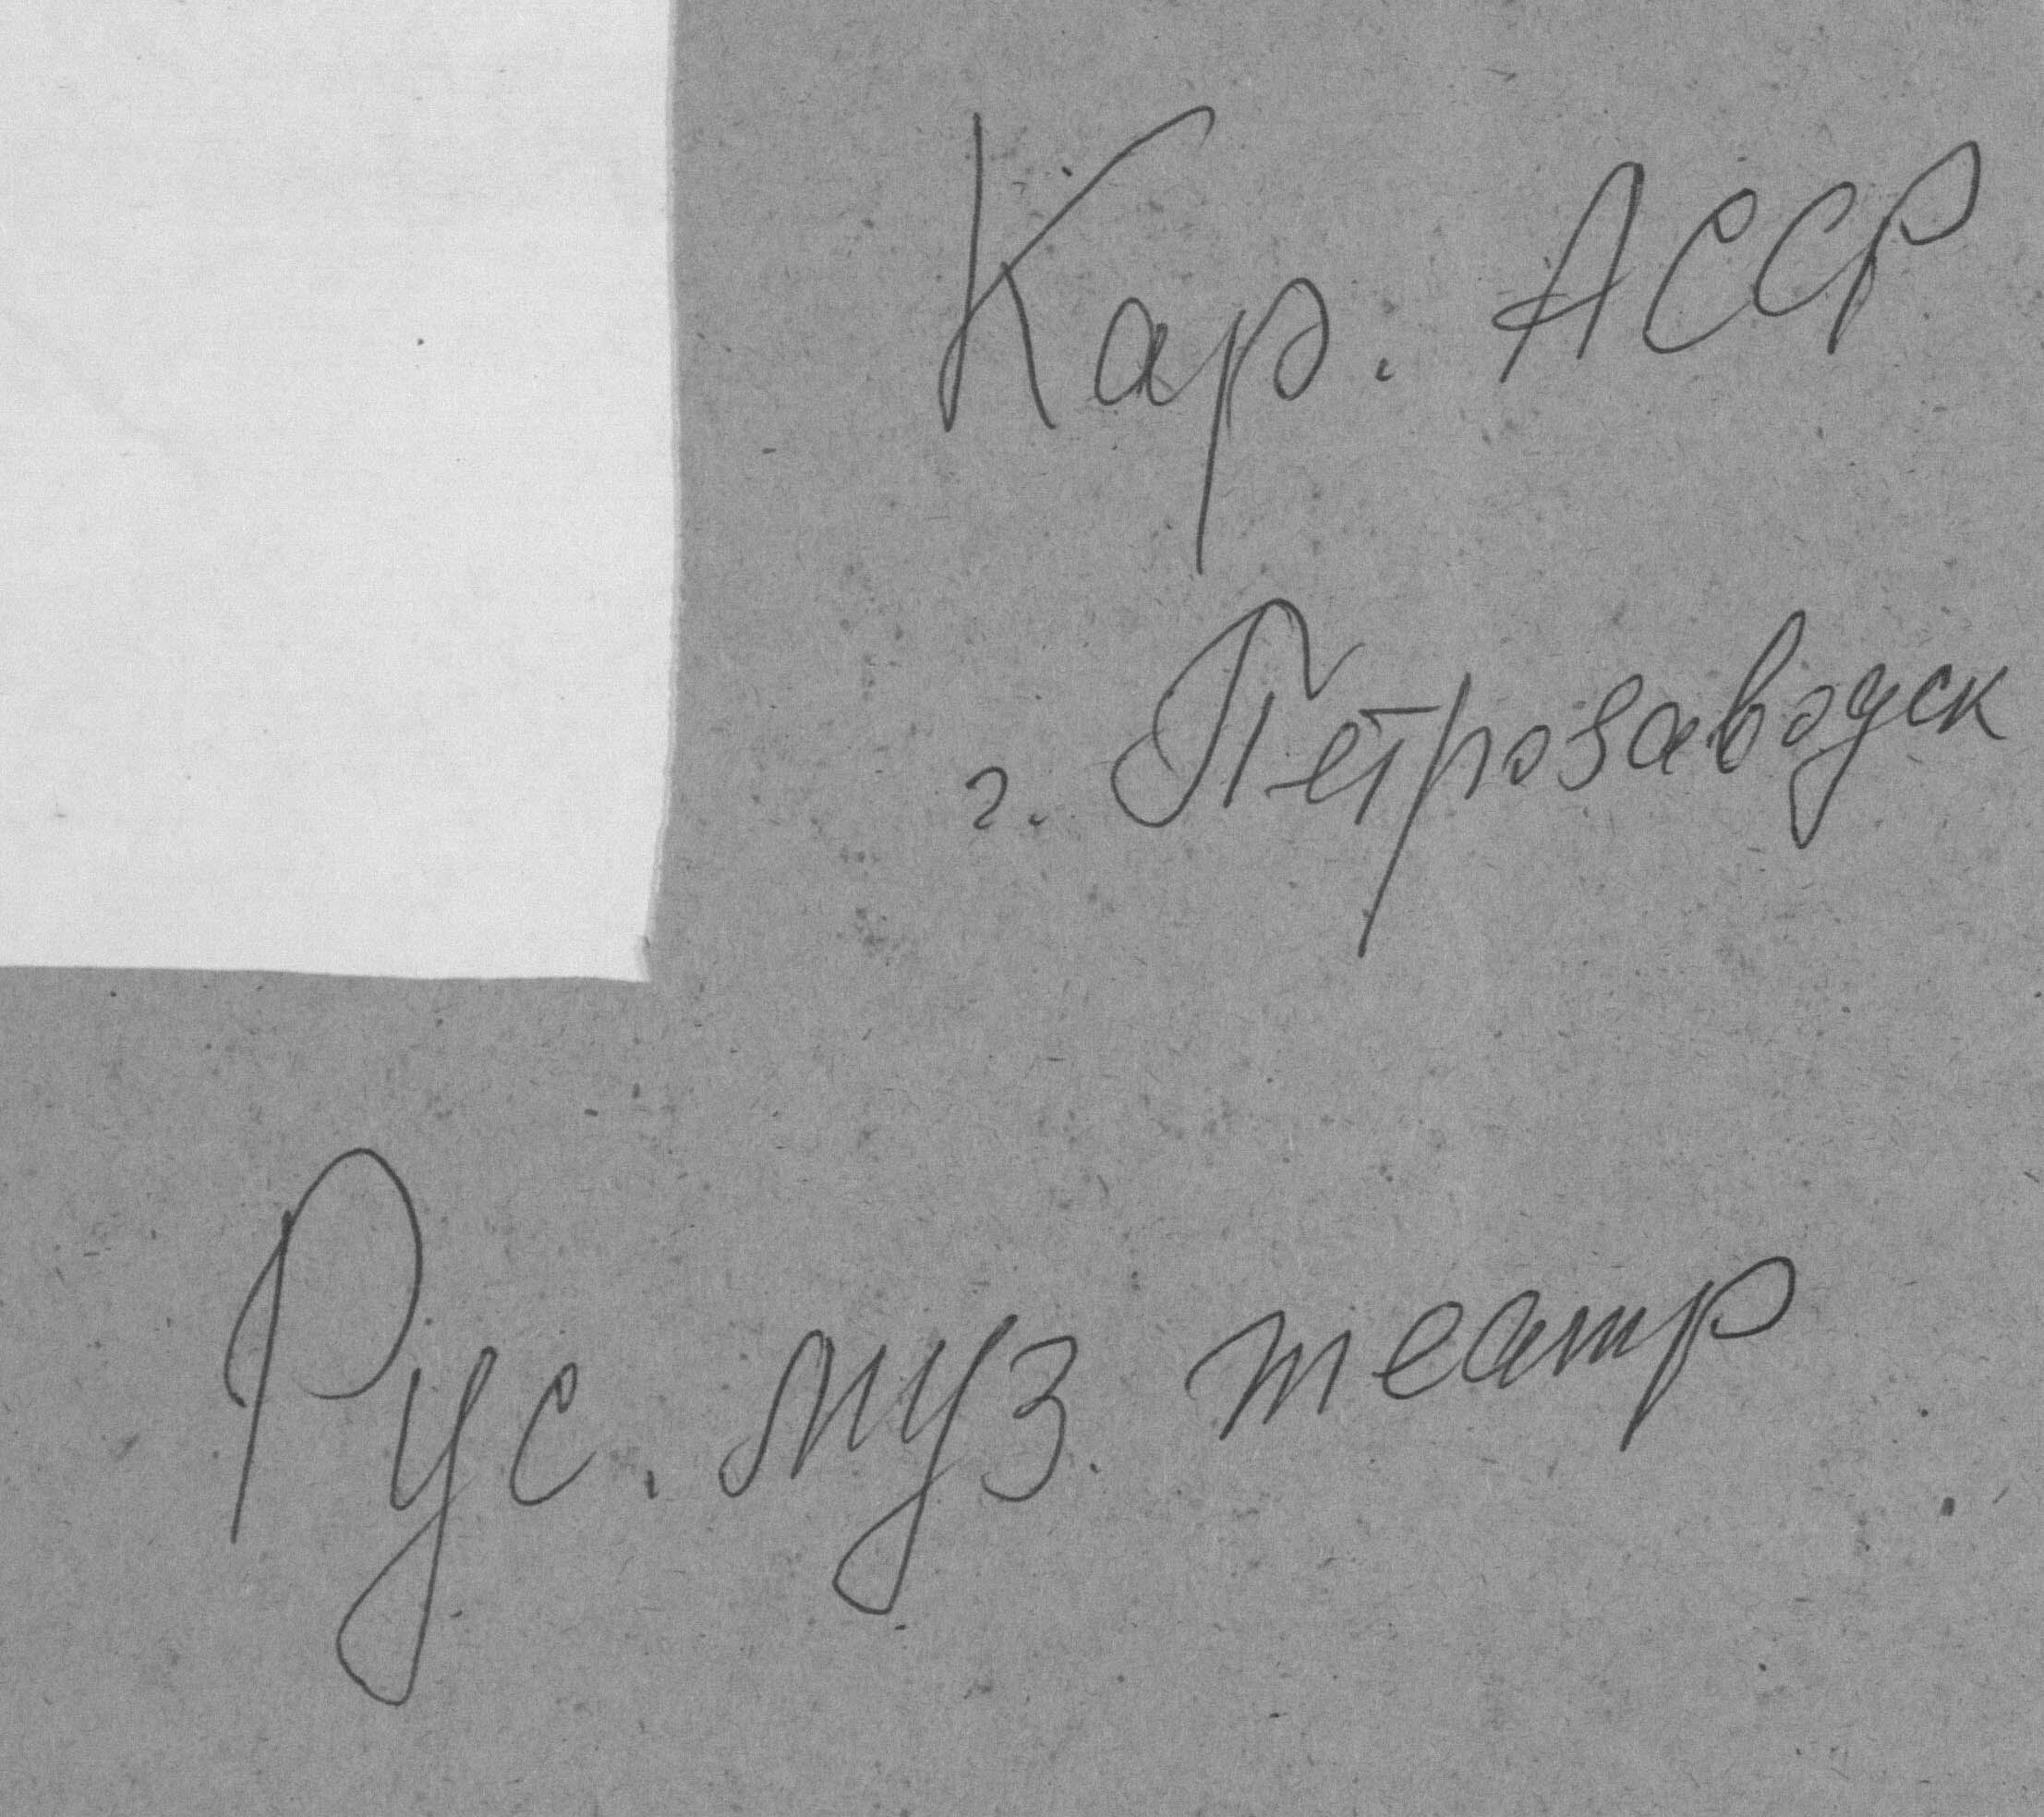 Кар. АССР
г. Петрозаводск
Рус. муз. театр